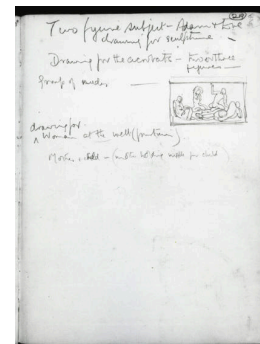 24
Two figure subject - Adam & Eve
drawing for sculpture
Drawing for the acrobats - two or three
figures
Group of nudes
drawing for
Woman at the well (fountain)
Mother & child - (mother holding up child